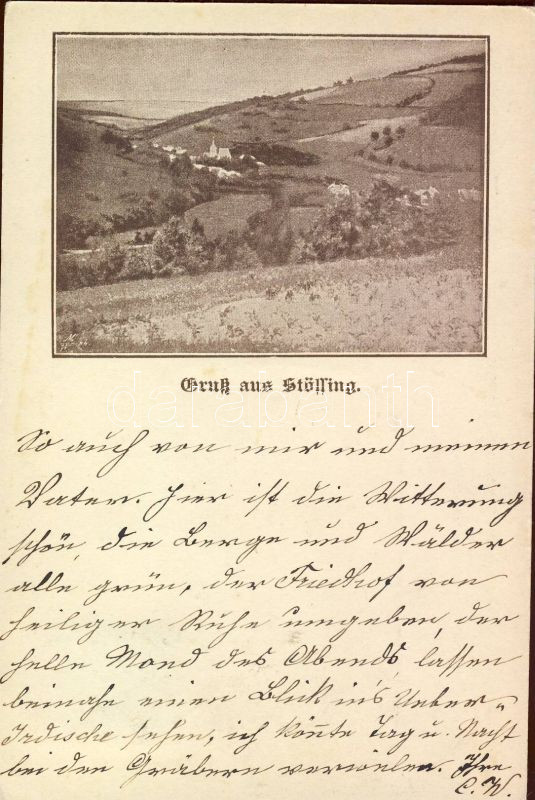 Gruß aus Stössing.
So auch von mir und meinen
Vater. Hier ist die Witterung
schön, die Berge und Wälder
alle grün, der Friedhof von
heiliger Ruhe umgeben, der
helle Mond des Abends, lassen
beinahe einen Blick in's Ueber-
Irdische sehen, ich könnte Tag u. Nacht
bei den Gräbern verweilen. Ihre
C. W.
darabanth